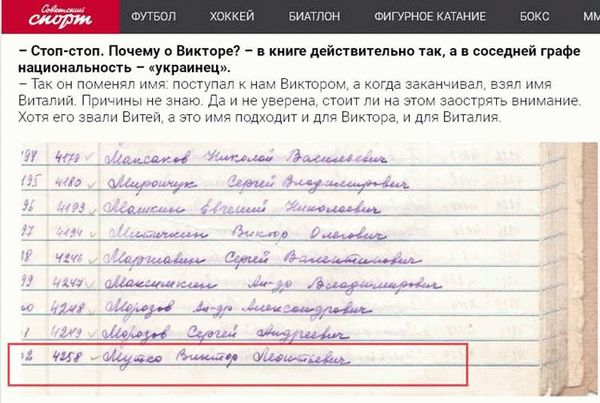 Советский
спорт
ФУТБОЛ ХОККЕЙ БИАТЛОН ФИГУРНОЕ КАТАНИЕ БОКС ММ
– Стоп-стоп. Почему о Викторе? – в книге действительно так, а в соседней графе
национальность – «украинец».
– Так он поменял имя: поступал к нам Виктором, а когда заканчивал, взял имя
Виталий. Причины не знаю. Да и не уверена, стоит ли на этом заострять внимание.
Хотя его звали Витей, а это имя подходит и для Виктора, и для Виталия.
4179 Николай Васильевич
195 4180 Мирончук Сергей Владимирович
96 4193 Машкин Евгений Николаевич
97 4194 Митичкин Виктор Олегович
98 4246 Сергей Валентинович
99 4247 Ал-др Владимирович
00 4248 Морозов Ал-др Александрович
4249 Морозов Сергей Андреевич
02 4258 Мутко Виктор Леонтьевич